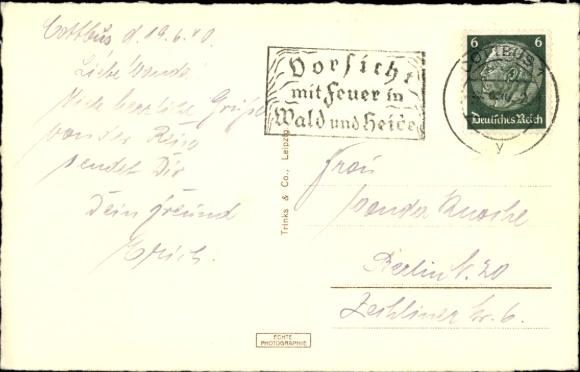 Cottbus, d. 19.6.40.
Liebe Wanda!
Viele herzliche Grüße
von der
sendet Dir
Dein Freund
Erich.
Vorsicht
mit Feuer in
Wald und Heide
6 6
Deutsches Reich
COTTBUS 1
y
Trinks & Co., Leipzig
Frau
Wanda
Berlin N. 20
Zechliner Str. 6.
ECHTE
PHOTOGRAPHIE